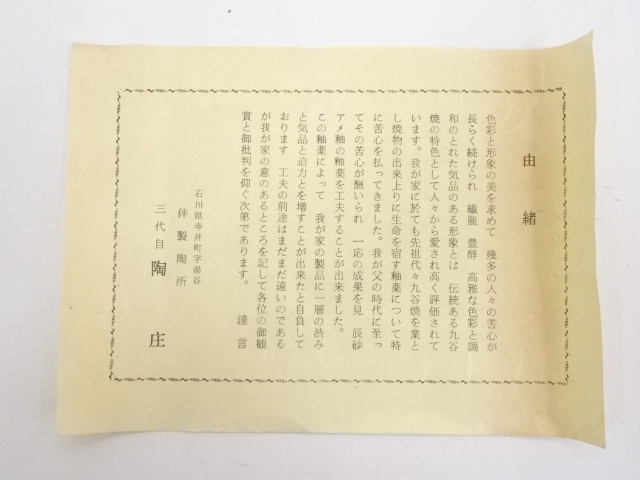 由緒
色彩と形象の美を求めて　幾多の人々の苦心が
長らく続けられ　繊麗　豊醇　高雅な色彩と調
和のとれた気品のある形象とは　伝統ある九谷
焼の特色として人々から愛され高く評価されて
います。我が家に於ても先祖代々九谷焼を業と
し焼物の出来上りに生命を宿す釉薬について特
に苦心を払ってきました。我が父の時代に至っ
てその苦心が酬いられ　一応の成果を見　辰砂
アメ釉の釉薬を工夫することが出来ました。
この釉薬によって　我が家の製品に一層の渋み
と気品と迫力とを増すことが出来たと自負して
おります　工夫の前途はまだまだ遠いのである
が我が家の意のあるところを記して各位の御観
賞と御批判を仰ぐ次第であります。　謹言
石川県寺井町字湯谷
伴製陶所
三代目　陶庄